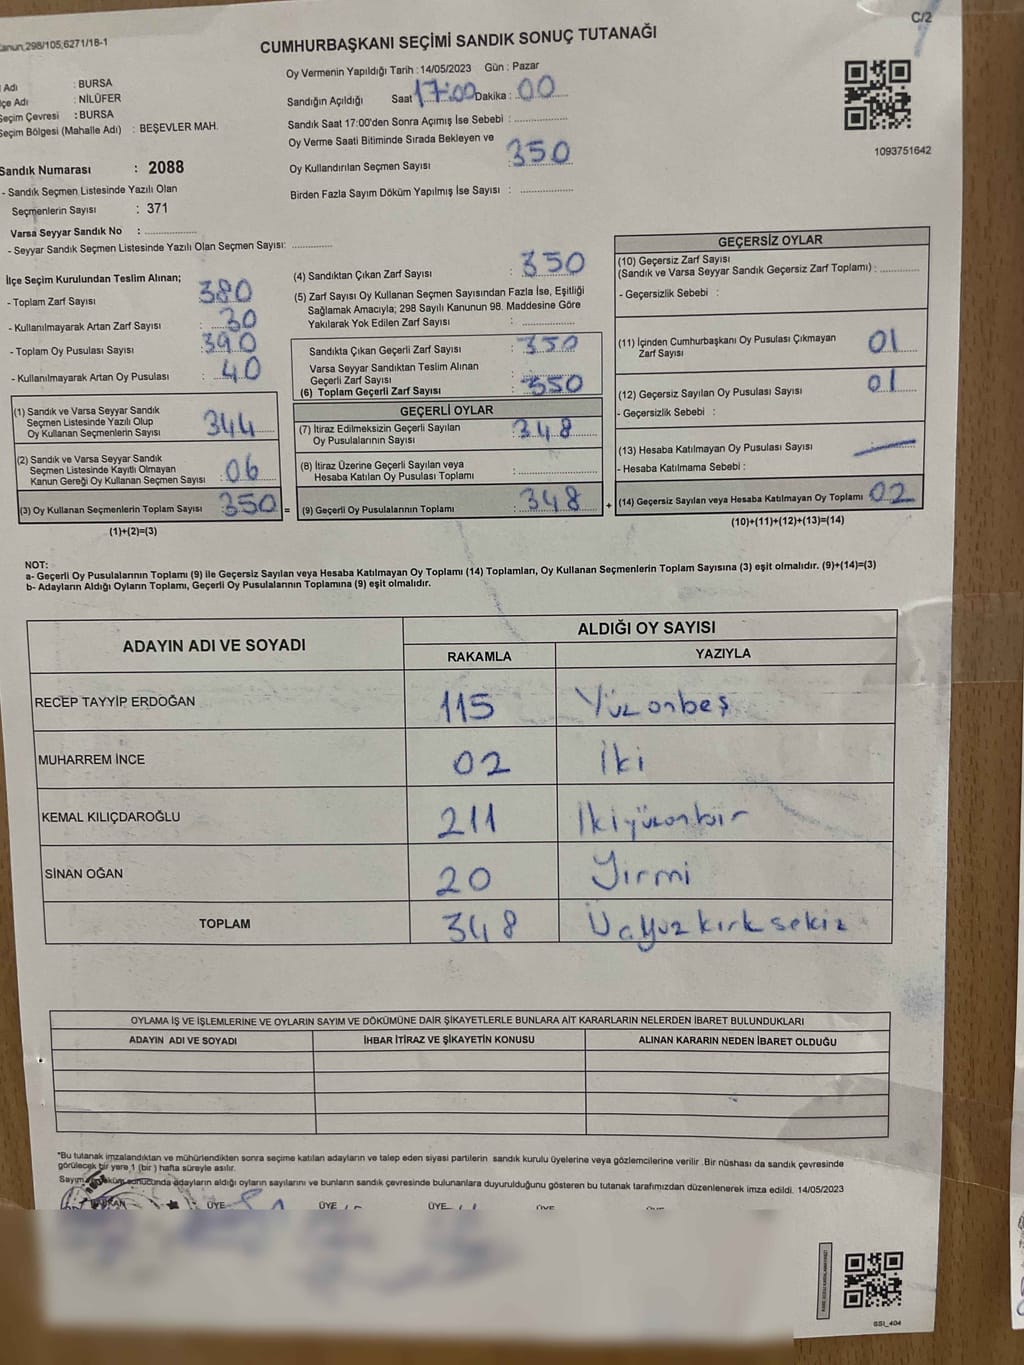 Kanun,298/105,6271/18-1
C/2
CUMHURBAŞKANI SEÇİMİ SANDIK SONUÇ TUTANAĞI
Adı : BURSA
İlçe Adı : NİLÜFER
Seçim Çevresi : BURSA
Seçim Bölgesi (Mahalle Adı) : BEŞEVLER MAH.
Oy Vermenin Yapıldığı Tarih : 14/05/2023 Gün : Pazar
Sandığın Açıldığı Saat 17:00 Dakika : 00
Sandık Saat 17:00'den Sonra Açımış İse Sebebi : ....................
Oy Verme Saati Bitiminde Sırada Bekleyen ve
Oy Kullandırılan Seçmen Sayısı 350
Birden Fazla Sayım Döküm Yapılmış İse Sayısı : ....................
1093751642
Sandık Numarası : 2088
- Sandık Seçmen Listesinde Yazılı Olan
Seçmenlerin Sayısı : 371
Varsa Seyyar Sandık No : ....................
- Seyyar Sandık Seçmen Listesinde Yazılı Olan Seçmen Sayısı: ...............
İlçe Seçim Kurulundan Teslim Alınan;
- Toplam Zarf Sayısı 380
- Kullanılmayarak Artan Zarf Sayısı : 30
- Toplam Oy Pusulası Sayısı : 390
- Kullanılmayarak Artan Oy Pusulası : 40
(1) Sandık ve Varsa Seyyar Sandık
Seçmen Listesinde Yazılı Olup
Oy Kullanan Seçmenlerin Sayısı 344
(2) Sandık ve Varsa Seyyar Sandık
Seçmen Listesinde Kayıtlı Olmayan
Kanun Gereği Oy Kullanan Seçmen Sayısı : 06
(3) Oy Kullanan Seçmenlerin Toplam Sayısı : 350 =
(1)+(2)=(3)
(4) Sandıktan Çıkan Zarf Sayısı : 350
(5) Zarf Sayısı Oy Kullanan Seçmen Sayısından Fazla İse, Eşitliği
Sağlamak Amacıyla; 298 Sayılı Kanunun 98. Maddesine Göre
Yakılarak Yok Edilen Zarf Sayısı : ...............
Sandıkta Çıkan Geçerli Zarf Sayısı : 350
Varsa Seyyar Sandıktan Teslim Alınan
Geçerli Zarf Sayısı : ...............
(6) Toplam Geçerli Zarf Sayısı : 350
GEÇERLİ OYLAR
(7) İtiraz Edilmeksizin Geçerli Sayılan
Oy Pusulalarının Sayısı : 348
(8) İtiraz Üzerine Geçerli Sayılan veya
Hesaba Katılan Oy Pusulası Toplamı : ...............
(9) Geçerli Oy Pusulalarının Toplamı : 348 +
GEÇERSİZ OYLAR
(10) Geçersiz Zarf Sayısı
(Sandık ve Varsa Seyyar Sandık Geçersiz Zarf Toplamı) : ..........
- Geçersizlik Sebebi :
(11) İçinden Cumhurbaşkanı Oy Pusulası Çıkmayan
Zarf Sayısı : 01
(12) Geçersiz Sayılan Oy Pusulası Sayısı : 01
- Geçersizlik Sebebi :
(13) Hesaba Katılmayan Oy Pusulası Sayısı : —
- Hesaba Katılmama Sebebi :
(14) Geçersiz Sayılan veya Hesaba Katılmayan Oy Toplamı : 02
(10)+(11)+(12)+(13)=(14)
NOT:
a- Geçerli Oy Pusulalarının Toplamı (9) ile Geçersiz Sayılan veya Hesaba Katılmayan Oy Toplamı (14) Toplamları, Oy Kullanan Seçmenlerin Toplam Sayısına (3) eşit olmalıdır. (9)+(14)=(3)
b- Adayların Aldığı Oyların Toplamı, Geçerli Oy Pusulalarının Toplamına (9) eşit olmalıdır.
ADAYIN ADI VE SOYADI ALDIĞI OY SAYISI
RAKAMLA YAZIYLA
RECEP TAYYİP ERDOĞAN 115 Yüzonbeş
MUHARREM İNCE 02 İki
KEMAL KILIÇDAROĞLU 211 İkiyüzonbir
SİNAN OĞAN 20 Yirmi
TOPLAM 348 Üçyüzkırksekiz
OYLAMA İŞ VE İŞLEMLERİNE VE OYLARIN SAYIM VE DÖKÜMÜNE DAİR ŞİKAYETLERLE BUNLARA AİT KARARLARIN NELERDEN İBARET BULUNDUKLARI
ADAYIN ADI VE SOYADI İHBAR İTİRAZ VE ŞİKAYETİN KONUSU ALINAN KARARIN NEDEN İBARET OLDUĞU
*Bu tutanak imzalandıktan ve mühürlendikten sonra seçime katılan adayların ve talep eden siyasi partilerin sandık kurulu üyelerine veya gözlemcilerine verilir .Bir nüshası da sandık çevresinde
görülecek bir yere 1 (bir ) hafta süreyle asılır.
Sayım döküm sonucunda adayların aldığı oyların sayılarını ve bunların sandık çevresinde bulunanlara duyurulduğunu gösteren bu tutanak tarafımızdan düzenlenerek imza edildi. 14/05/2023
BAŞKAN ÜYE ÜYE ÜYE ÜYE
SSI_404